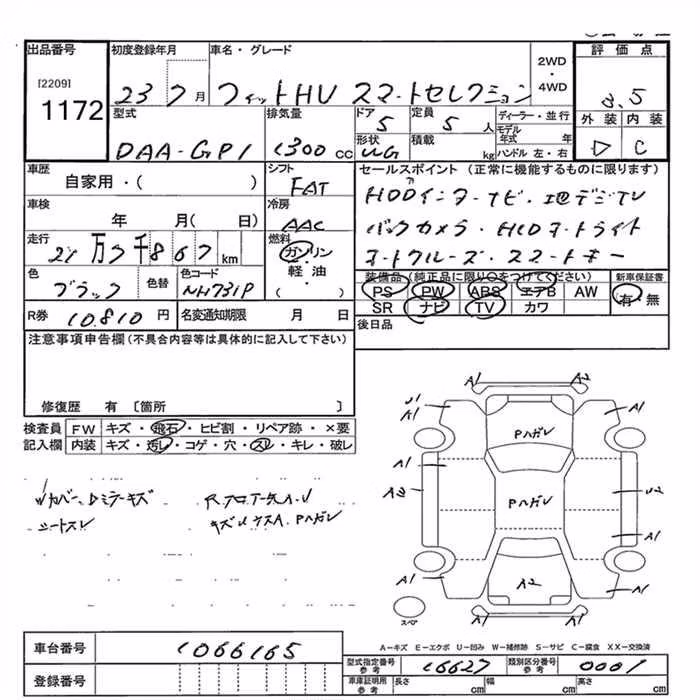 出品番号
[2209]
1172
初度登録年月
23 7月
車名・グレード
フィットHV スマートセレクション
2WD
・
4WD
評価点
3.5
外装 内装
D C
型式
DAA-GP1
排気量
1300 cc
ドア
5
形状
WG
定員
5 人
積載
kg
ディーラー・並行
モデル年式 年
ハンドル 左・右
車歴
自家用・( )
シフト
FAT
冷房
AAC
燃料
ガソリン
軽・油
( )
車検
年 月( 日)
走行
21万7千867km
色
ブラック
色替
色コード
NH731P
R券 10.810 円
名変通知期限 月 日
セールスポイント(正常に機能するものに限ります)
HDDインターナビ・地デジTV
バックカメラ・HIDオートライト
オートクルーズ・スマートキー
装備品(純正品に限り○をつけてください)
PS PW ABS エアB AW
SR ナビ TV カワ
新車保証書
有・無
後日品
注意事項申告欄(不具合内容等は具体的に記入して下さい)
修復歴 有 〔箇所 〕
検査員
記入欄
FW キズ・飛石・ヒビ割・リペア跡・×要
内装 キズ・汚し・コゲ・穴・スレ・キレ・破し
シートスレ
キズ
Pハガレ
A1 A2
U1
A1
A1
Pハガレ
A1
A3
Pハガレ
U2
A1
A1
A2
A1
A1 A1
スペア
A-キズ E-エクボ U-凹み W-補修跡 S-サビ C-腐食 XX-交換済
車台番号 1066165
登録番号
型式指定番号
参考
16627
類別区分番号
参考
0001
車庫証明用
参考
長さ cm 幅 cm 高さ cm